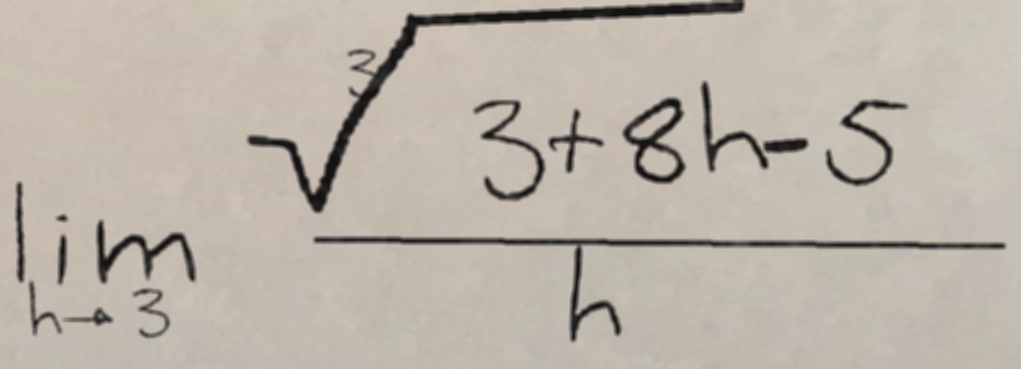 lim h→3 ∛(3+8h-5) / h